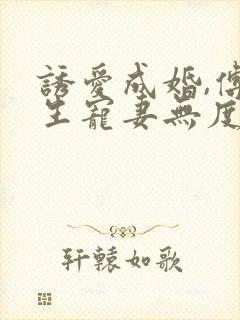 誘愛成婚,
生寵妻無度
轩轅如歌